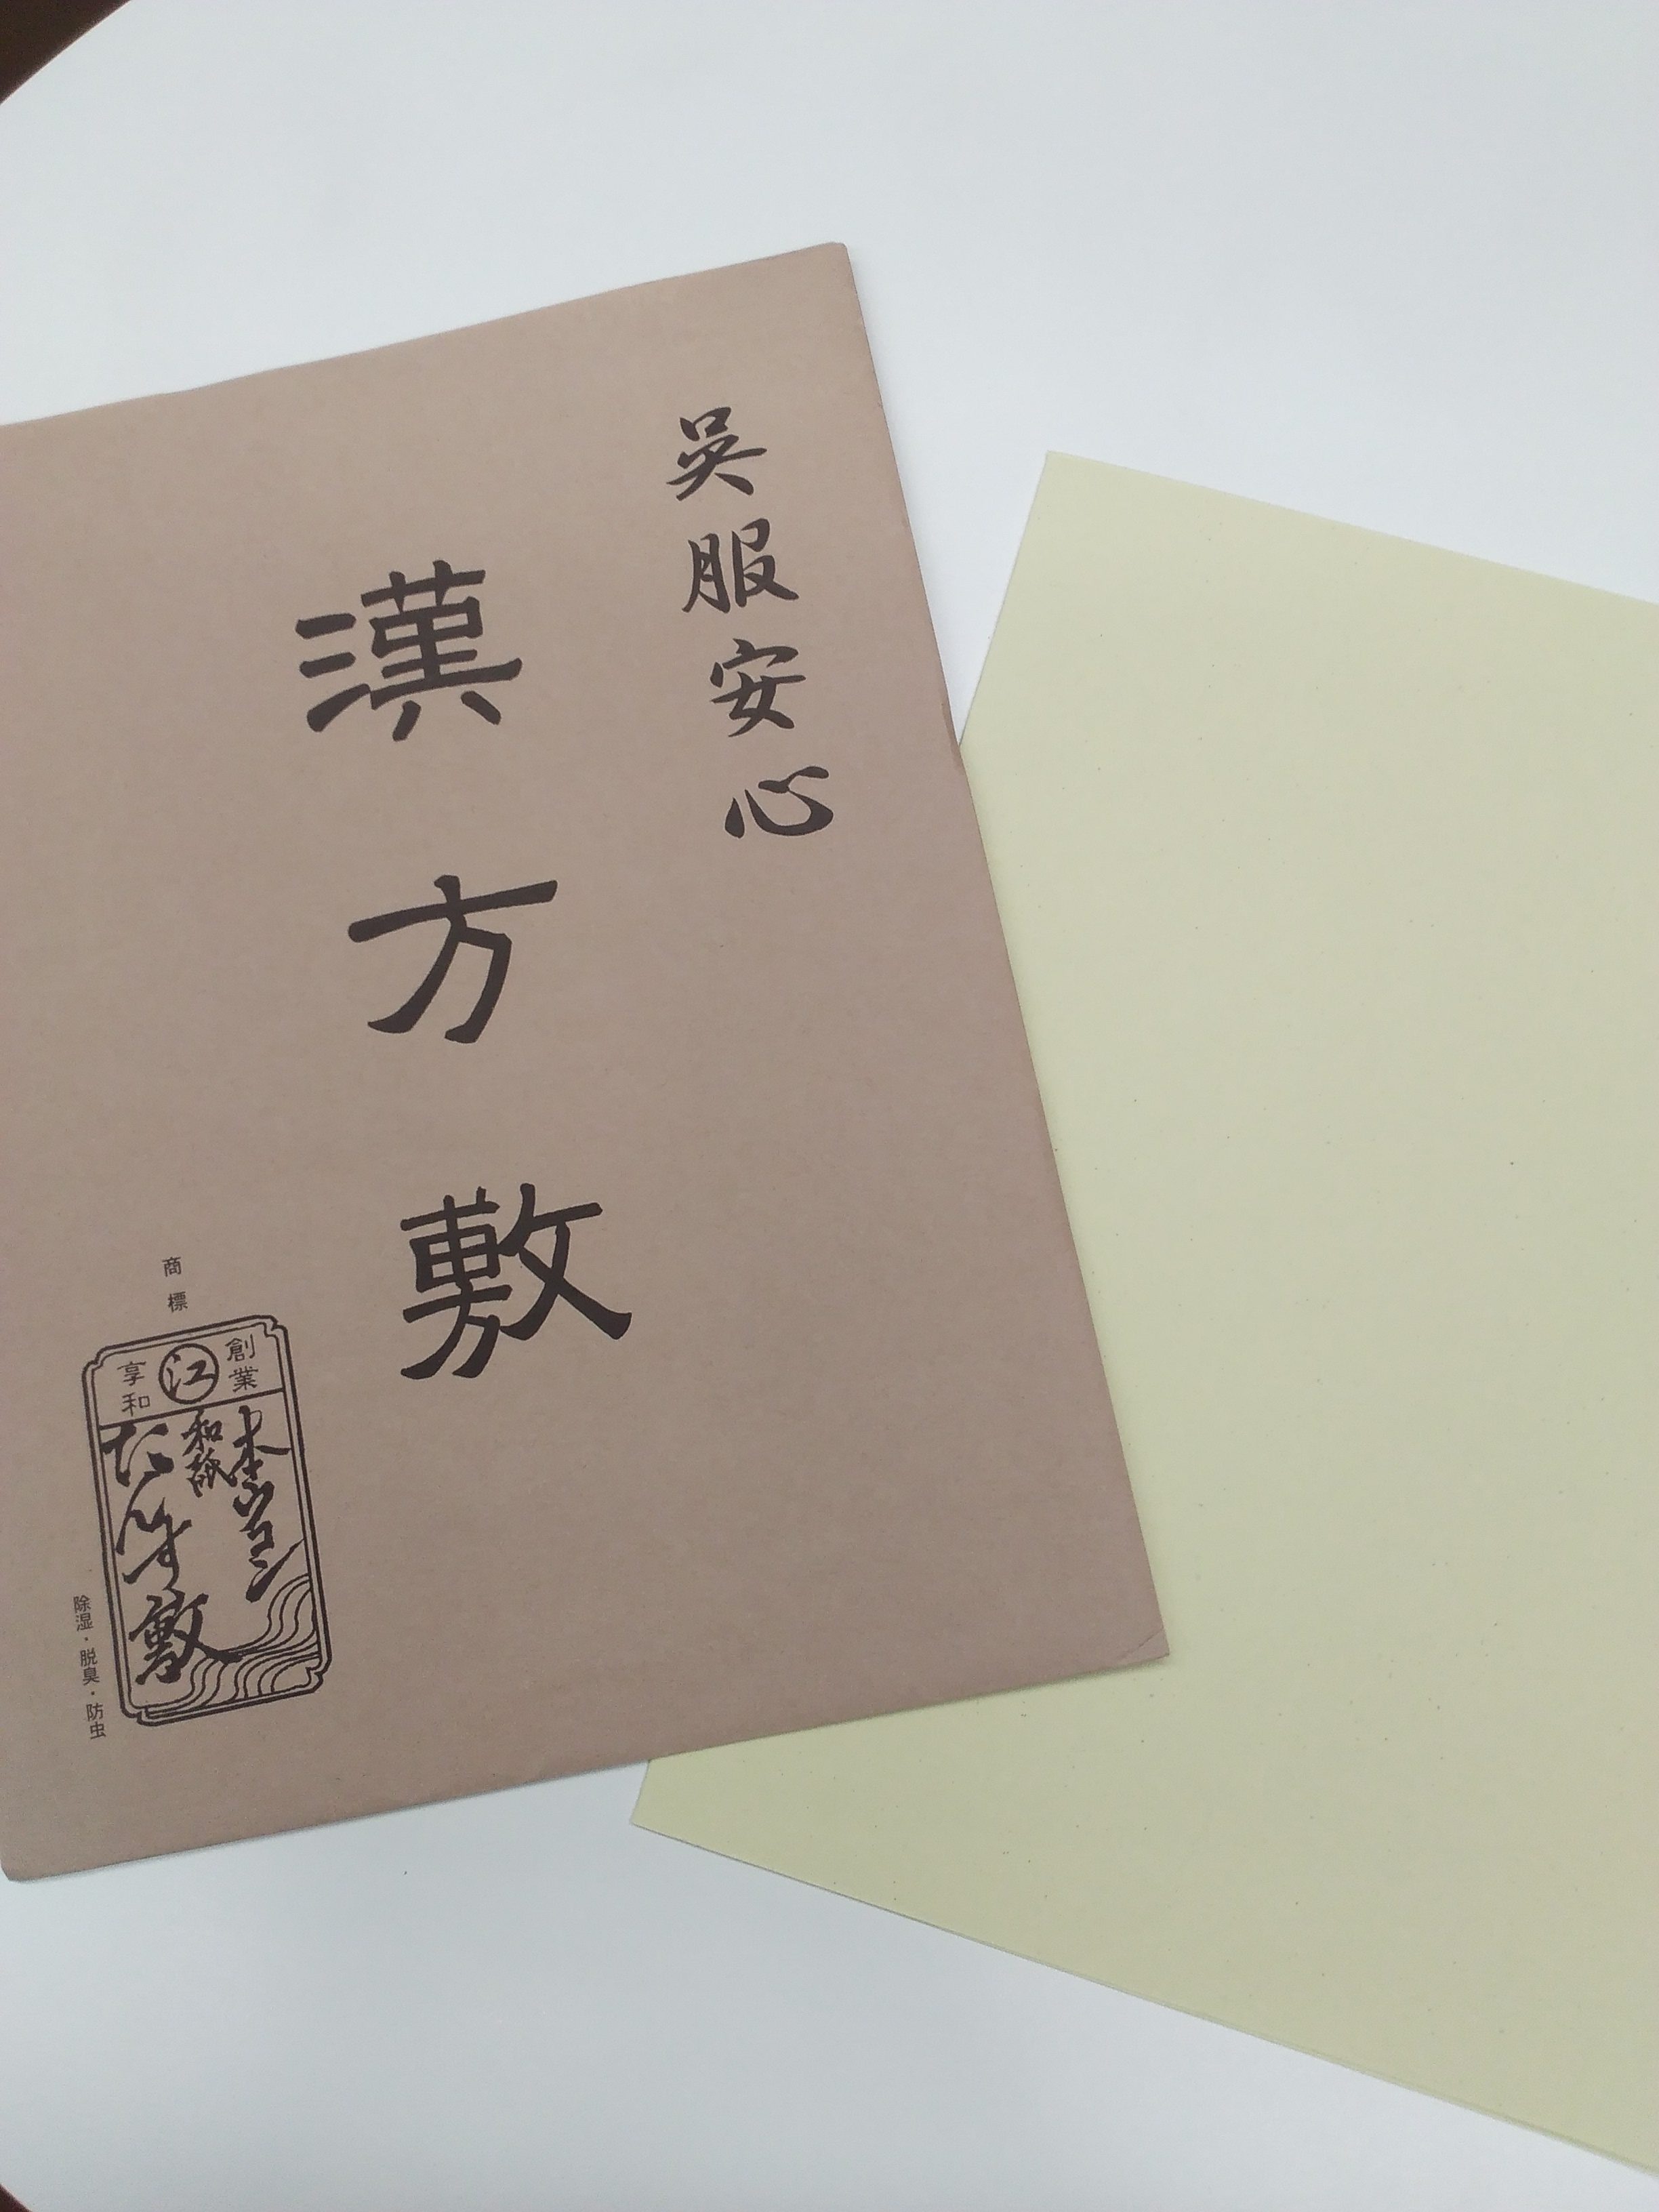 呉服安心
漢方敷
商標
創業
江
享和
本ウコン
和紙
たんす敷
除湿・脱臭・防虫